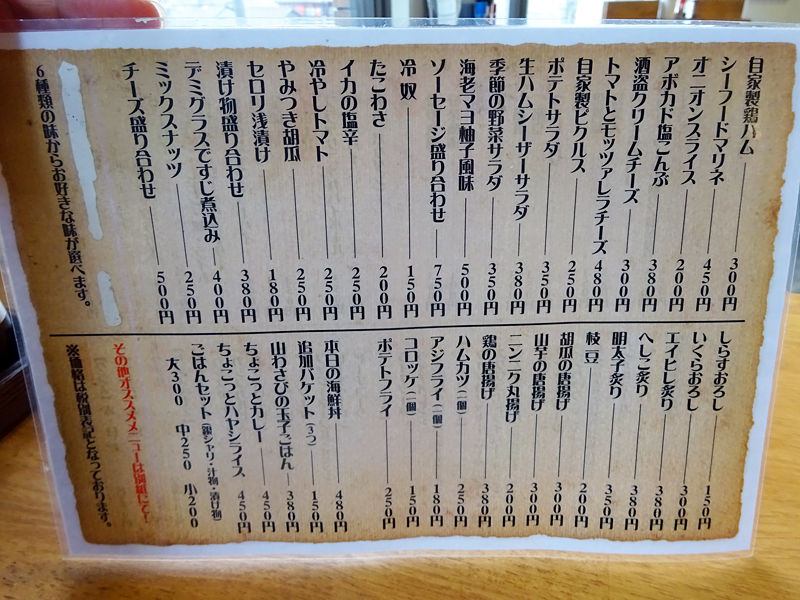 自家製鶏ハム 300円
シーフードマリネ 450円
オニオンスライス 200円
アボカド塩こんぶ 380円
酒盗クリームチーズ 300円
トマトとモッツァレラチーズ 480円
自家製ピクルス 250円
ポテトサラダ 350円
生ハムシーザーサラダ 380円
季節の野菜サラダ 350円
海老マヨ柚子風味 500円
ソーセージ盛り合わせ 750円
冷奴 150円
たこわさ 200円
イカの塩辛 250円
冷やしトマト 250円
やみつき胡瓜 250円
セロリ浅漬け 180円
漬け物盛り合わせ 380円
デミグラスですじ煮込み 400円
ミックスナッツ 250円
チーズ盛り合わせ 500円
6種類の味からお好きな味が選べます。
しらすおろし 150円
いくらおろし 300円
エイヒレ炙り 380円
へしこ炙り 380円
明太子炙り 350円
枝豆 200円
胡瓜の唐揚げ 300円
山芋の唐揚げ 300円
ニンニク丸揚げ 200円
鶏の唐揚げ 380円
ハムカツ(一個) 250円
アジフライ(一個) 180円
コロッケ(一個) 150円
ポテトフライ 250円
本日の海鮮丼 480円
追加バケット(3つ) 150円
山わさびの玉子ごはん 380円
ちょこっとカレー 450円
ちょこっとハヤシライス 450円
ごはんセット(銀シャリ・汁物・漬け物)
大300 中250 小200
その他オススメメニューは別紙にて!
※価格は税別表記となっております。